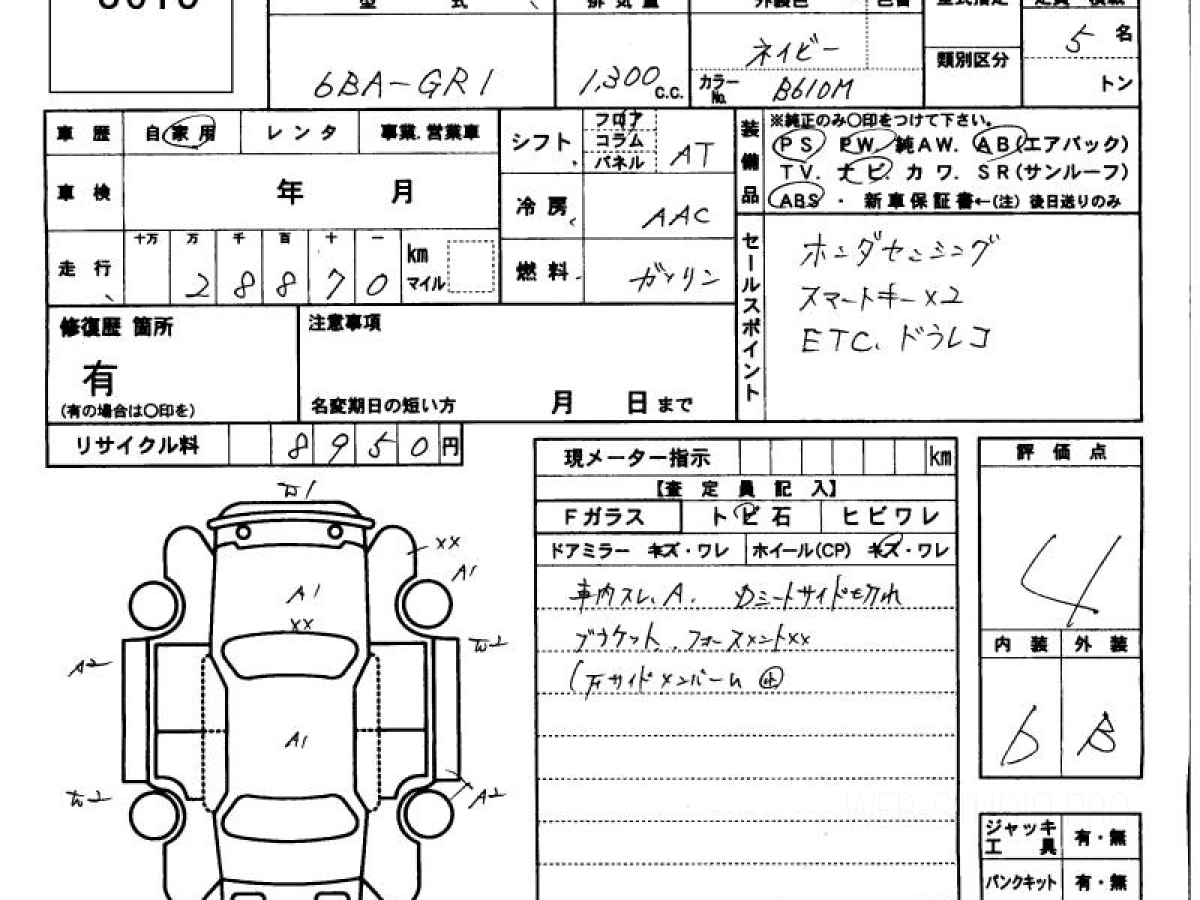 型 式
排 気 量
外装色
色番
型式指定
定員 積載
6BA-GR1
1,300 c.c.
ネイビー
カラーNo. B610M
類別区分
5 名
トン
車 歴 自 家 用 レ ン タ 事業.営業車
シフト フロア コラム パネル AT
車 検 年 月
冷 房 AAC
走 行 十万 万 千 百 十 一
2 8 8 7 0 km マイル
燃 料 ガソリン
装備品
※純正のみ〇印をつけて下さい。
PS PW 純AW. AB(エアバック)
TV. ナビ. カワ. SR(サンルーフ)
ABS ・ 新車保証書←(注) 後日送りのみ
セールスポイント
ホンダセンシング
スマートキー×2
ETC、ドラレコ
修復歴 箇所
有
(有の場合は〇印を)
注意事項
名変期日の短い方 月 日 まで
リサイクル料 8 9 5 0 円
現メーター指示 km
【査 定 員 記 入】
Fガラス ト ビ 石 ヒ ビ ワ レ
ドアミラー キズ・ワレ ホイール(CP) キズ・ワレ
車内スレ、A.
ブラケット、フォースメントxx
評 価 点
4
内 装 外 装
b B
ジャッキ 工 具 有・無
パンクキット 有・無
xx
A1
A1
xx
A2
A1
A2
WEB-STUDIO.PRO